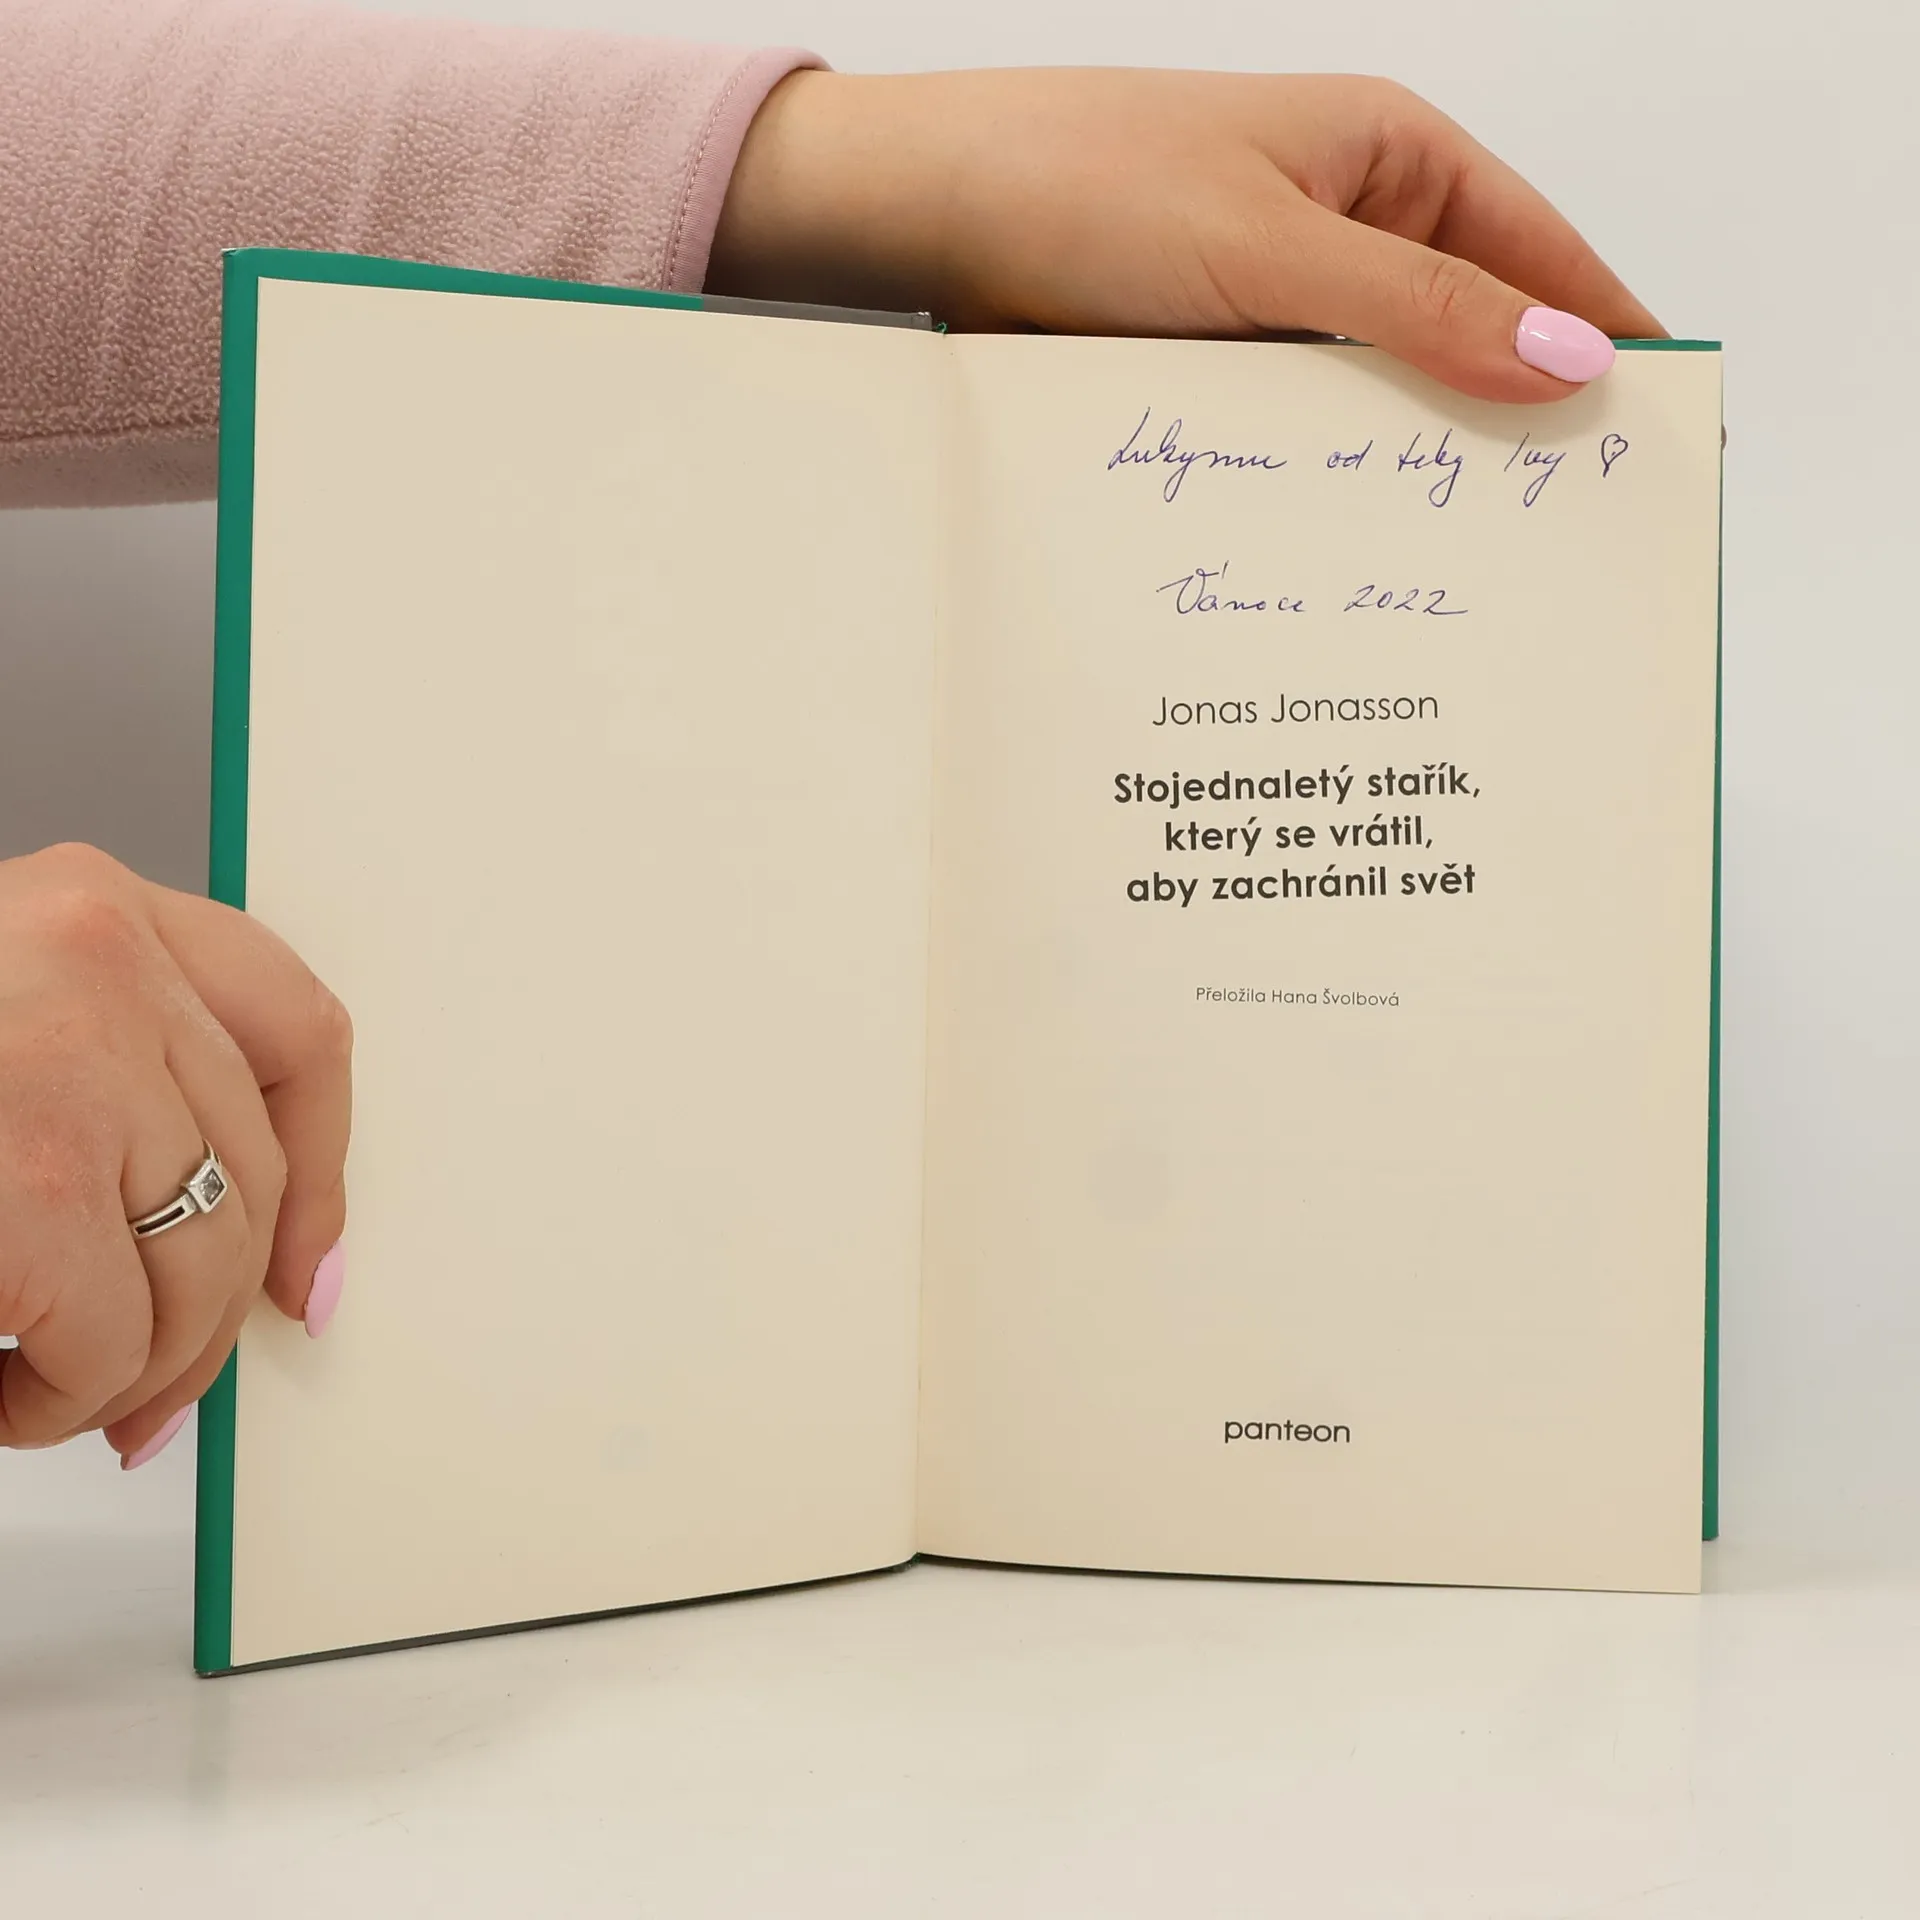 Lukymu od tety Ivy ♡
Vánoce 2022
Jonas Jonasson
Stojednaletý stařík,
který se vrátil,
aby zachránil svět
Přeložila Hana Švolbová
panteon